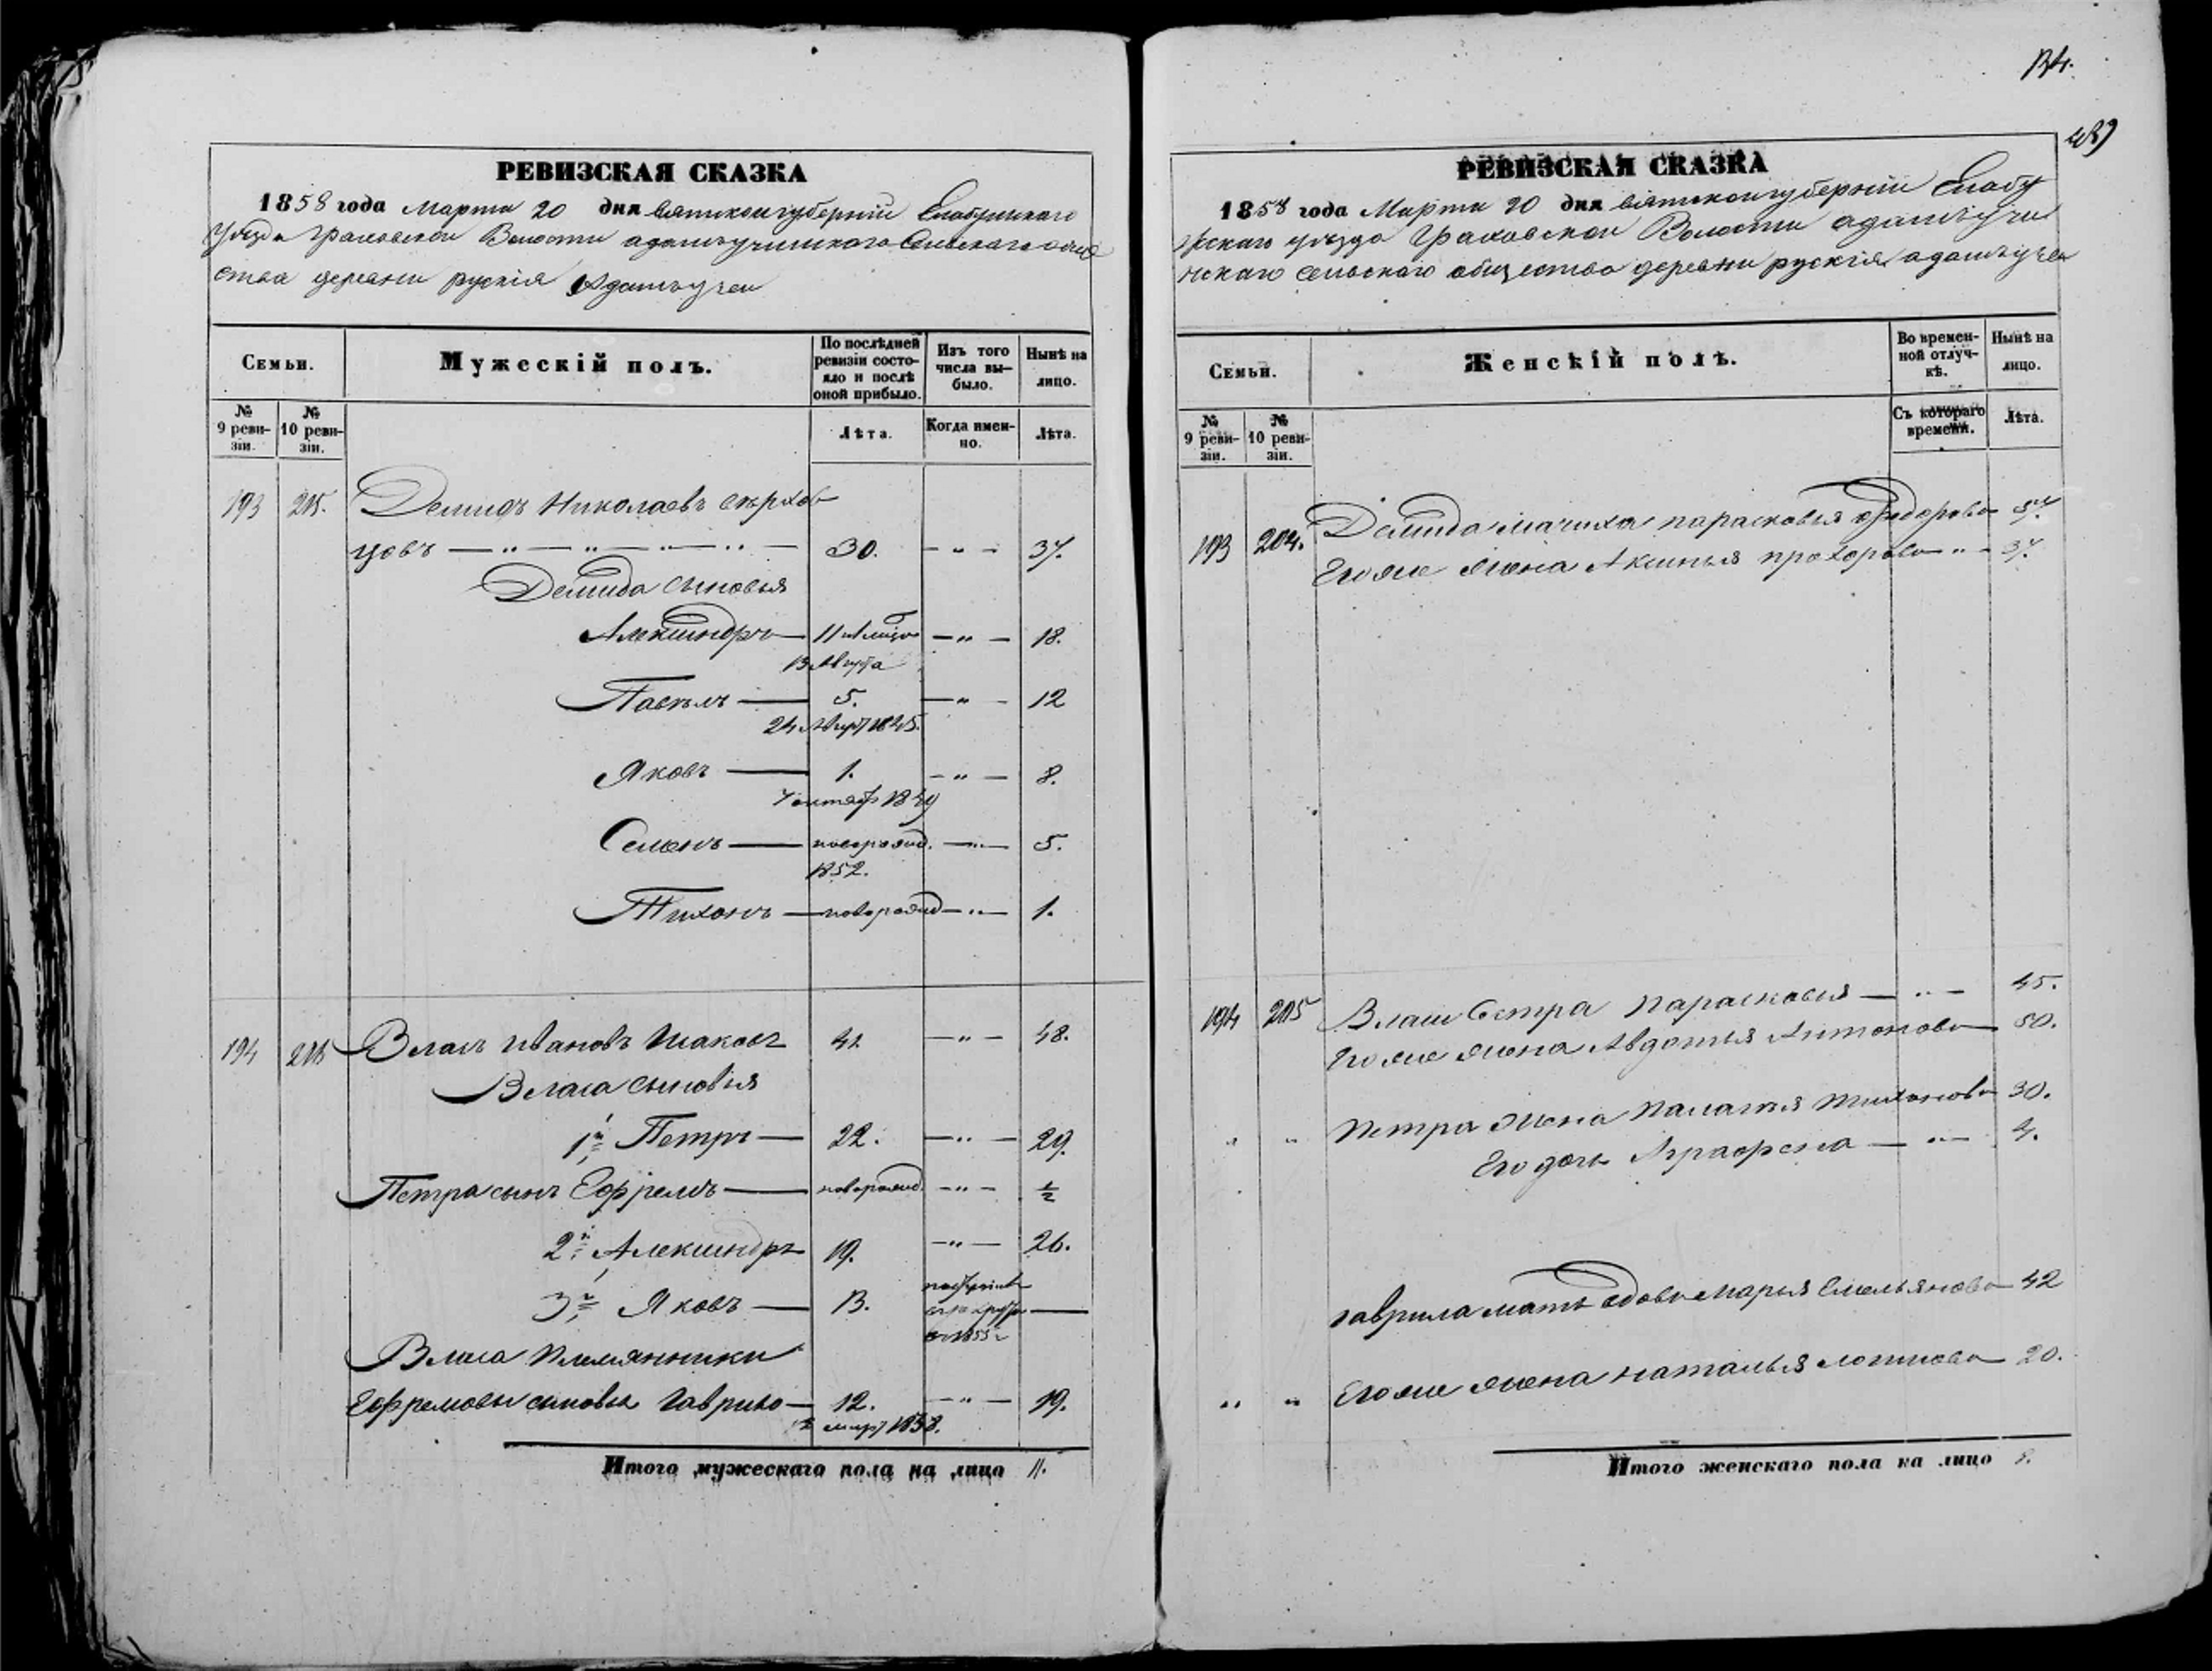 РЕВИЗСКАЯ СКАЗКА
1858 года Марта 20 дня вятской губернии Елабужского
Уезда Граховской Волости
ства деревни руския Адамъучеи
Семьи.
Мужескій полъ.
По послѣдней ревизіи состояло и послѣ оной прибыло.
Изъ того числа выбыло.
Нынѣ на лицо.
№ 9 ревизіи.
№ 10 ревизіи.
Лѣта.
Когда именно.
Лѣта.
193 Демидъ Николаевъ
цовъ — „ — „ — „ — „ — 30. — „ — 37.
Демида сыновья
Александръ — 11 — „ — 18.
13 Августа
Павелъ — 5. — „ — 12
24 1845.
Яковъ — 1. — „ — 8.
7 октяб 1849
Семенъ — новорожд. — „ — 5.
1852.
Тихонъ — новорожд — „ — 1.
194 Власъ Ивановъ 41 — „ — 48.
Власа сыновья
1й Петръ — 22. — „ — 29.
Петра сынъ Ефремъ — новорожд. — „ — ½
2й Александръ 19. — „ — 26.
3й Яковъ — 13. —
1855
Власа племянники
Ефремовы сыновья Гаврило — 12. — „ — 19.
1858.
Итого мужескаго пола на лицо 11.
134.
РЕВИЗСКАЯ СКАЗКА
1858 года Марта 20 дня вятской губернии Елабу
жскаго уезда Граховской Волости адамъучи
нскаго сельскаго общества деревни руския адамъучеи
Семьи.
Женскій полъ.
Во временной отлучкѣ.
Нынѣ на лицо.
№ 9 ревизіи.
№ 10 ревизіи.
Съ котораго времени.
Лѣта.
193 204. Демида мачиха парасковья Федорова 57.
Его же жена Аксинья прохорова — „ — 37.
194 205 Власа Сестра парасковья — „ — 45.
Его же жена Авдотья Антонова — 50.
„ „ Петра жена палагея тихонова 30.
Его дочь Аграфена — „ — 4.
гаврила мать вдова марья Емельянова — 42
„ „ Его же жена наталья логинова — 20.
Итого женскаго пола на лицо 8.